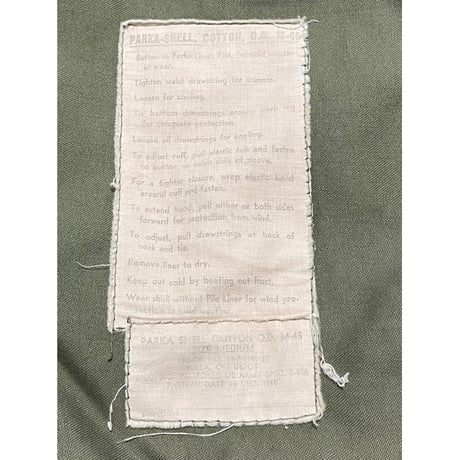 PARKA-SHELL, COTTON, O.D. M-48
Button in Parka Liner, Pile, for cold weather
or wear.
Tighten waist drawstring for warmth.
Loosen for cooling.
Tie bottom drawstrings around each leg
for complete protection.
Loosen all drawstrings for cooling.
To adjust cuff, pull elastic tab and fasten
to button on outer side of sleeve.
For a tighter closure, wrap elastic band
around cuff and fasten.
To extend hood, pull either or both sides
forward for protection from wind.
To adjust, pull drawstrings at back of
neck and tie.
Remove liner to dry.
Keep out cold by beating out frost.
Wear shell without Pile Liner for wind pro-
tection in mild weather.
PARKA SHELL COTTON O.D. M-48
SIZE MEDIUM
STOCK NO.
DEPOT
PATTERN DATE 14 DEC. 1948
INSPECTOR